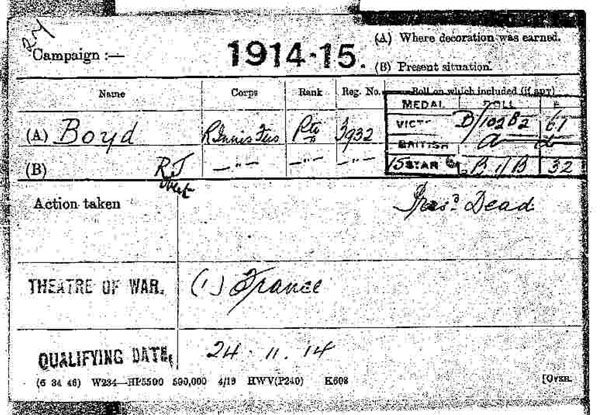 Campaign :— 1914-15. (A) Where decoration was earned.
(B) Present situation.
Name Corps Rank Reg. No. Roll on which included (if any)
MEDAL ROLL P
(A) Boyd R Innis Fus Pte 3932 VICT D/102B2 61
BRITISH
(B) R.J — " — — " — — " — 15 STAR B 32
Action taken Pres'd Dead
THEATRE OF WAR. (1) France
QUALIFYING DATE. 24 . 11 . 14
(6 34 46) W234—HP5500 500,000 4/19 HWV(P240) K608 [OVER.